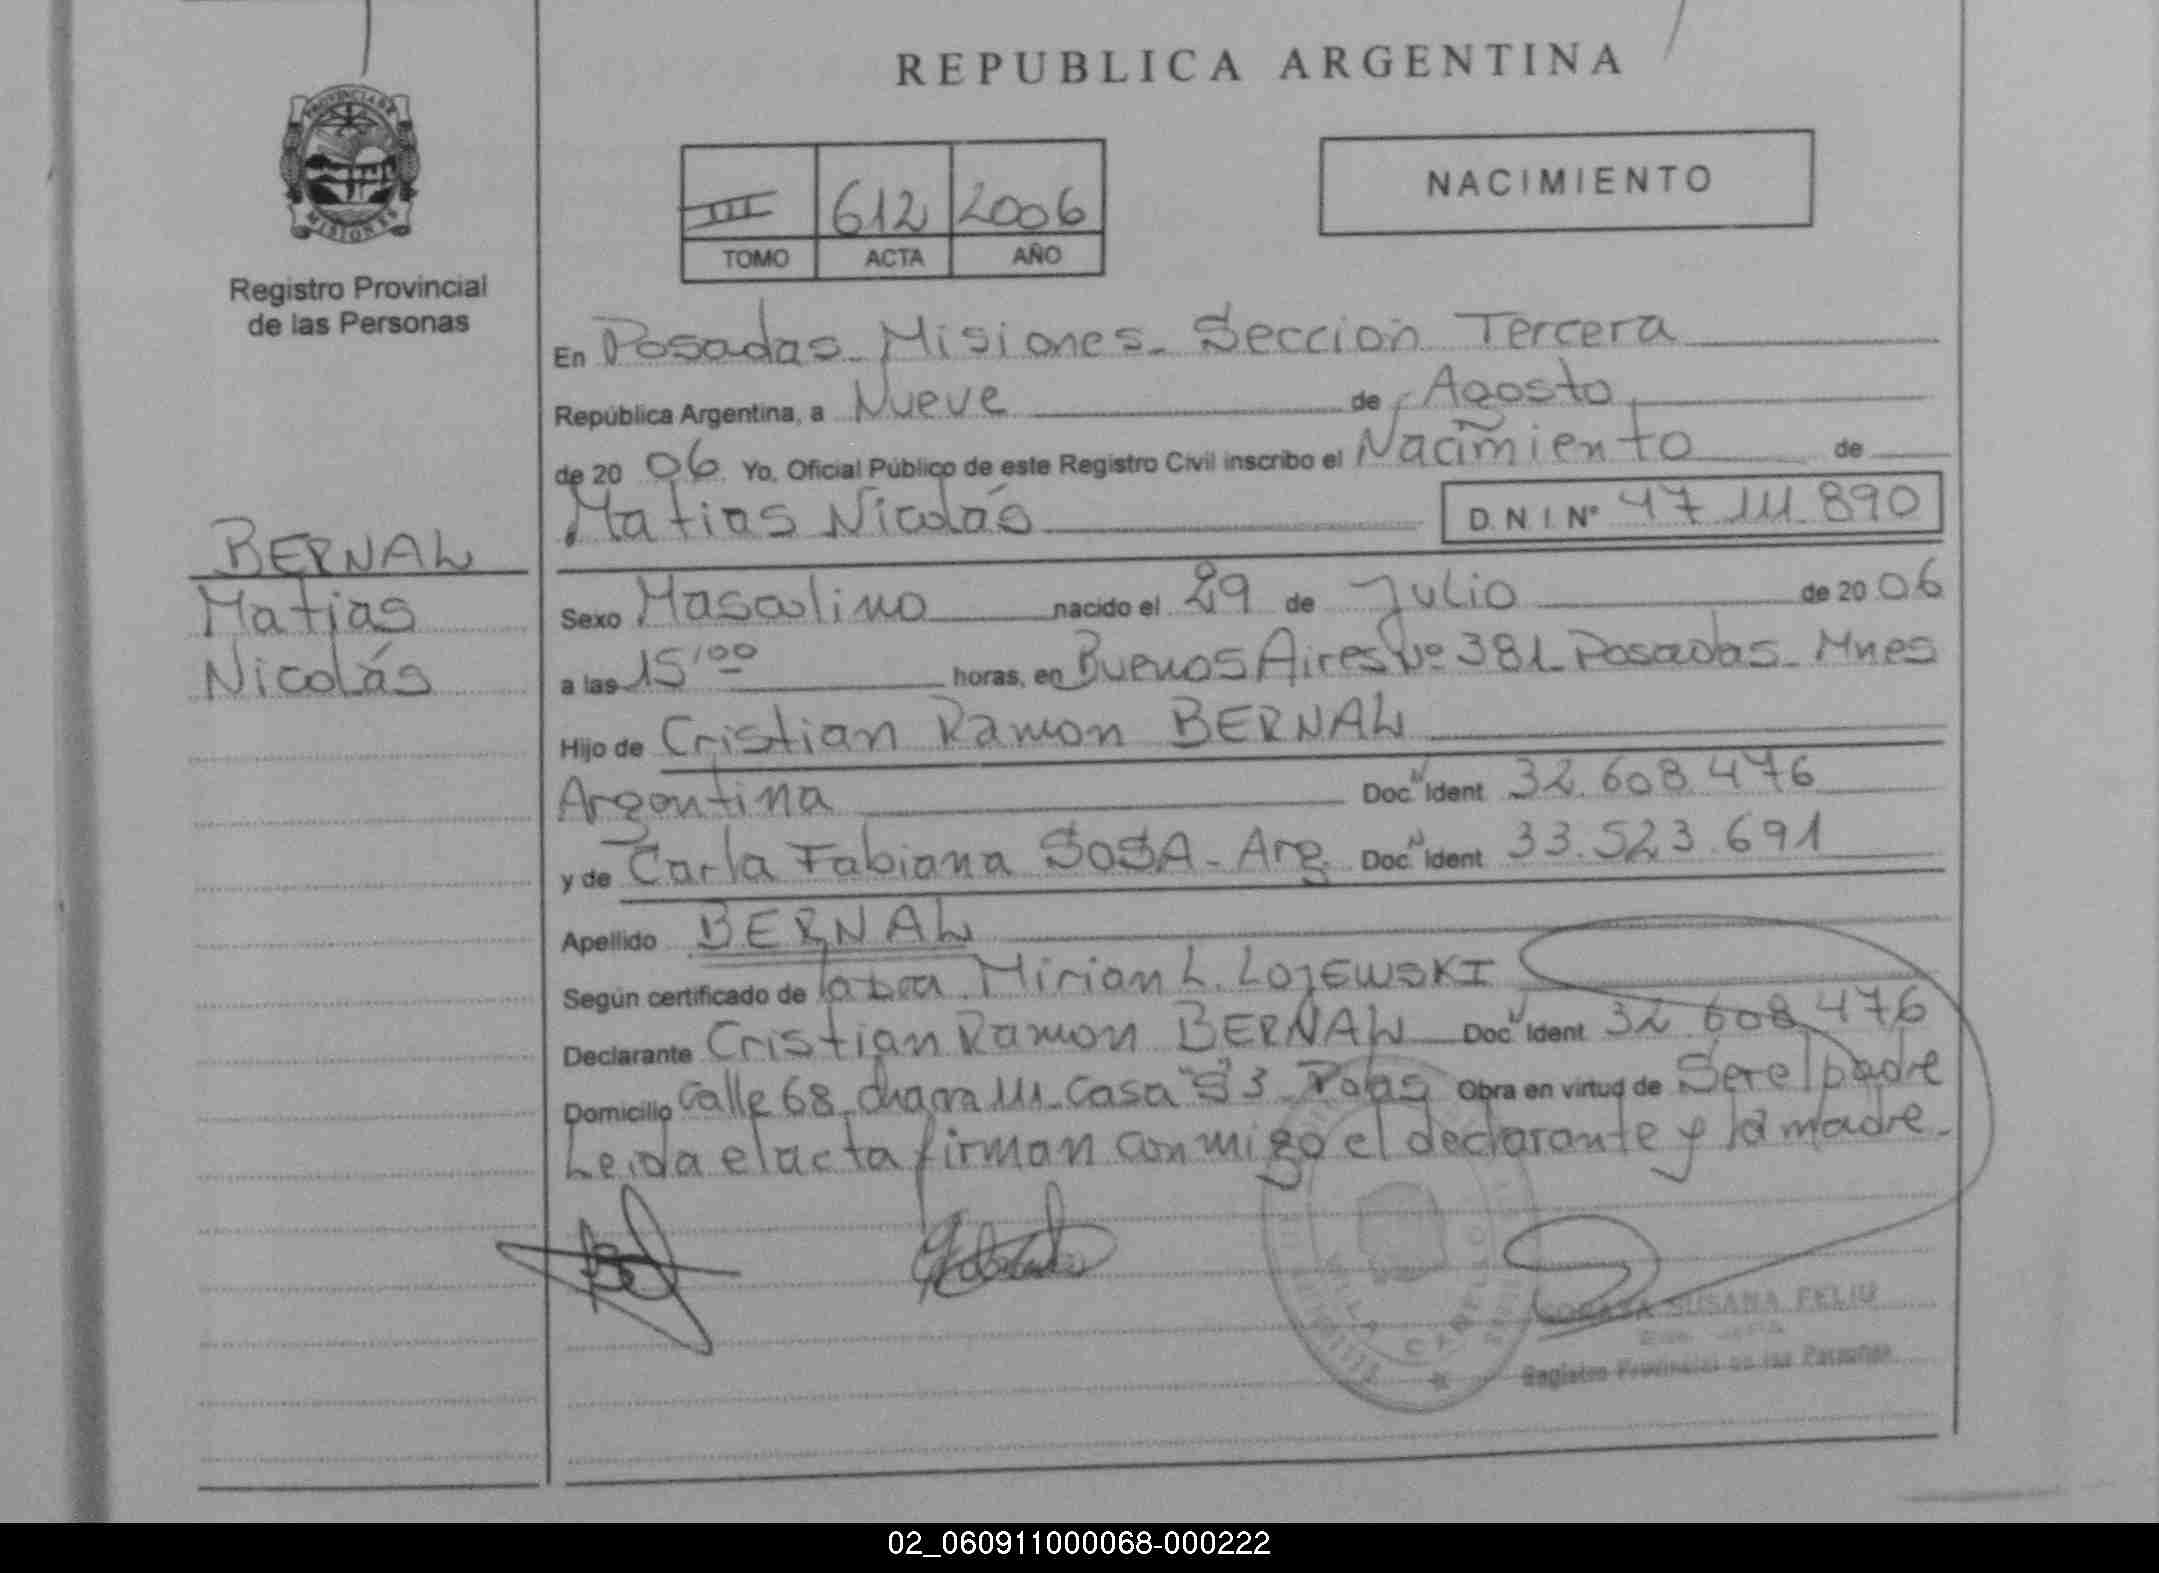 REPUBLICA ARGENTINA
PROVINCIA DE
MISIONES
Registro Provincial
de las Personas
III 612 2006
TOMO ACTA AÑO
NACIMIENTO
En Posadas - Misiones - Sección Tercera
República Argentina, a Nueve de Agosto
de 20 06 Yo, Oficial Público de este Registro Civil inscribo el Nacimiento de
Matias Nicolás D.N.I. Nº 47.111.890
BERNAL
Matias
Nicolás
Sexo Masculino nacido el 29 de Julio de 20 06
a las 15'00 horas, en Buenos Aires Nº 381 Posadas - Mnes
Hijo de Cristian Ramon BERNAL
Argentina Doc. N Ident 32.608.476
y de Carla Fabiana SOSA - Arg. Doc. N Ident 33.523.691
Apellido BERNAL
Según certificado de la Dra Mirian L. LOJEWSKI
Declarante Cristian Ramon BERNAL Doc N Ident 32.608.476
Domicilio Calle 68 - chacra 111 - Casa "S" 3 - Pdas Obra en virtud de Ser el padre
Leida el acta firman conmigo el declarante y la madre.
SUSANA FELIU
Registro Provincial de las Personas
02_060911000068-000222